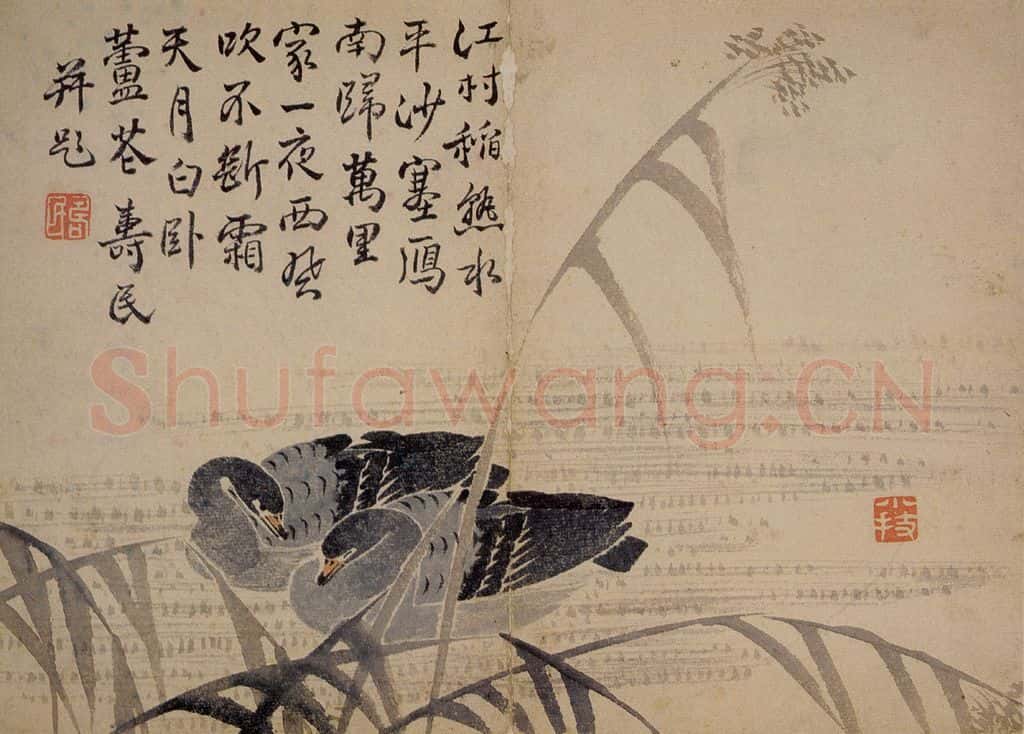 江村稻熟水
平沙塞鴈
南歸萬里
家一夜西風
吹不斷霜
天月白卧
蘆花 壽民
并題
小技
Shufawang.CN